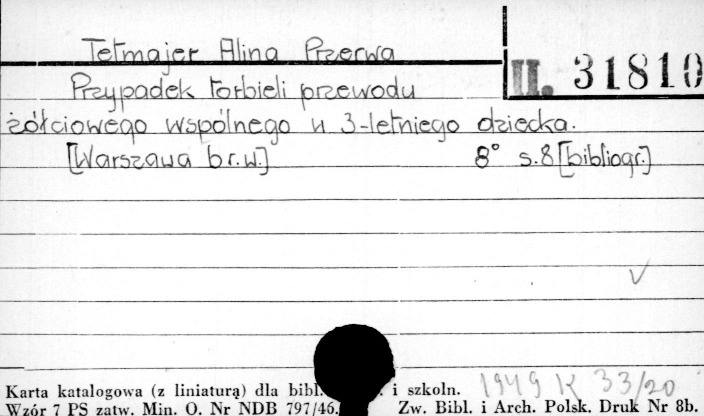 Tetmajer Alina Przerwa
II. 31810
Przypadek torbieli przewodu
żółciowego wspólnego u 3-letniego dziecka.
[Warszawa b.r.w.] 8° s.8 [bibliogr.]
Karta katalogowa (z liniaturą) dla bibl. i szkoln.
1949 K 33/20
Wzór 7 PS zatw. Min. O. Nr NDB 797/46. Zw. Bibl. i Arch. Polsk. Druk Nr 8b.